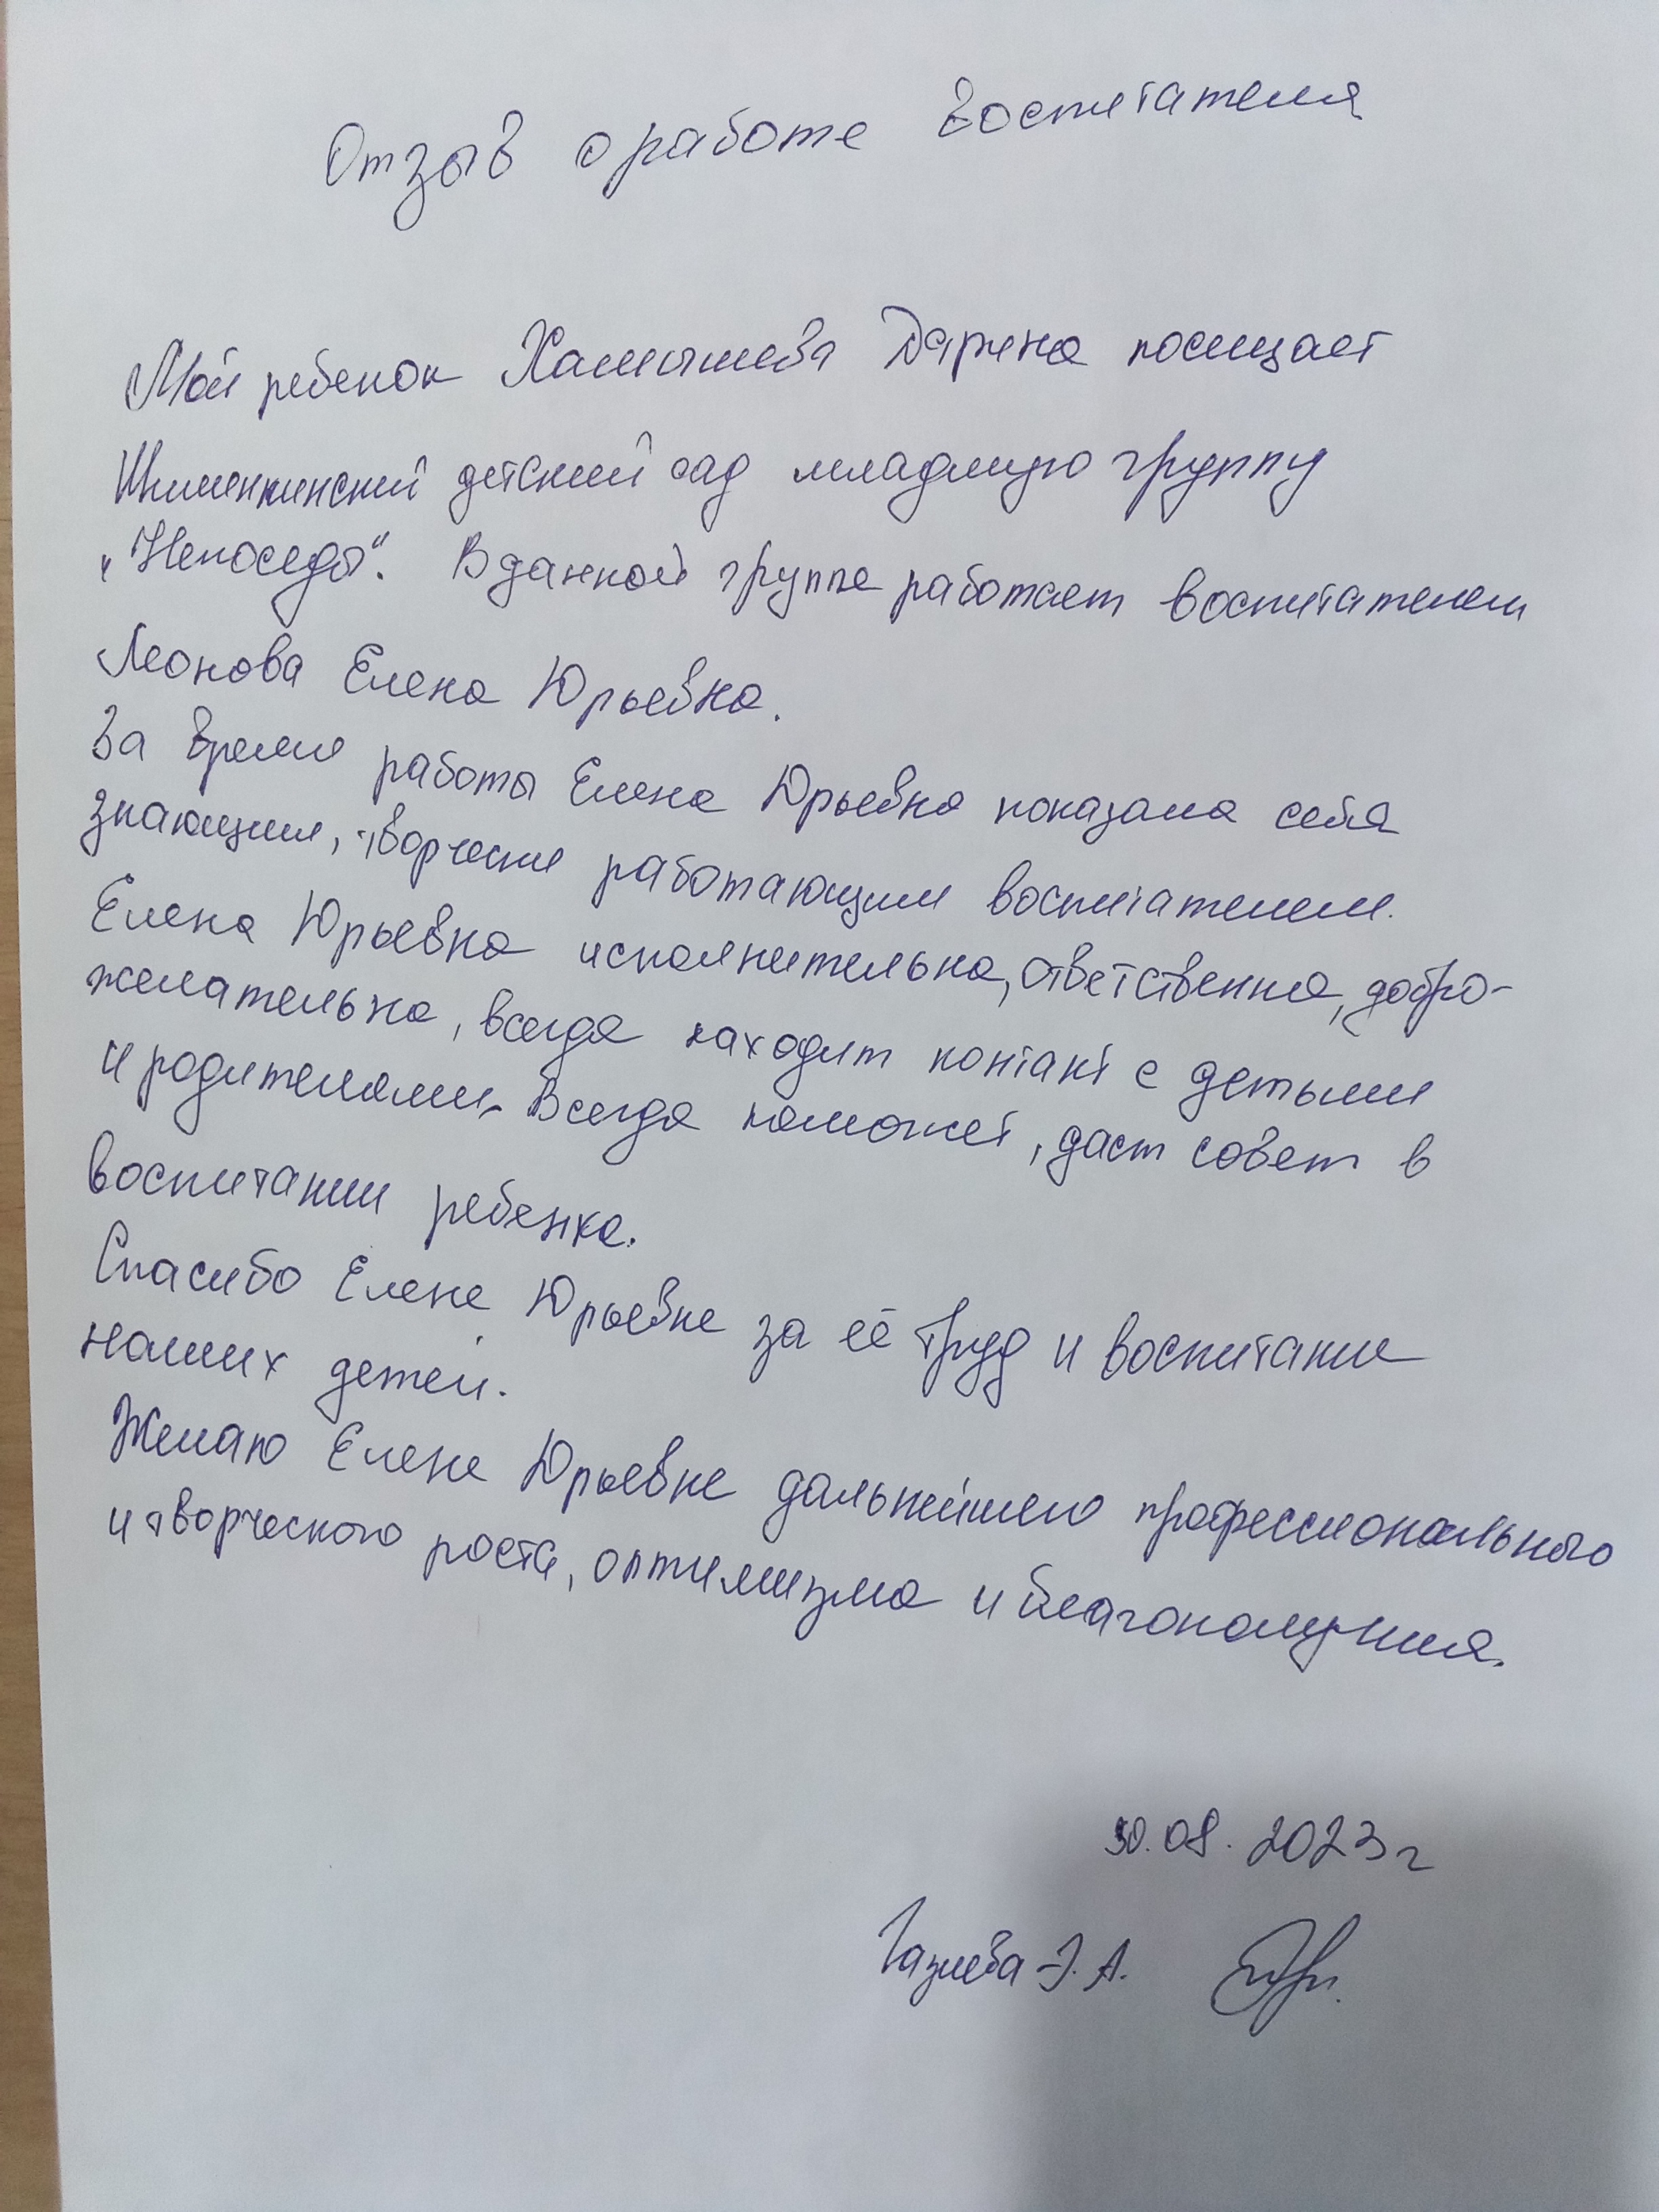 Отзыв о работе воспитателя
Мой ребенок Хамышева Дарина посещает
детский сад младшую группу
„Непоседы“. В данной группе работает воспитателем
Леонова Елена Юрьевна.
За время работы Елена Юрьевна показала себя
знающим, творчески работающим воспитателем.
Елена Юрьевна исполнительна, ответственна, добро-
желательна, всегда находит контакт с детьми
и родителями. Всегда поможет, даст совет в
воспитании ребенка.
Спасибо Елене Юрьевне за её труд и воспитание
наших детей.
Желаю Елене Юрьевне дальнейшего профессионального
и творческого роста, оптимизма и благополучия.
30.08.2023г
Газиева Э. А.